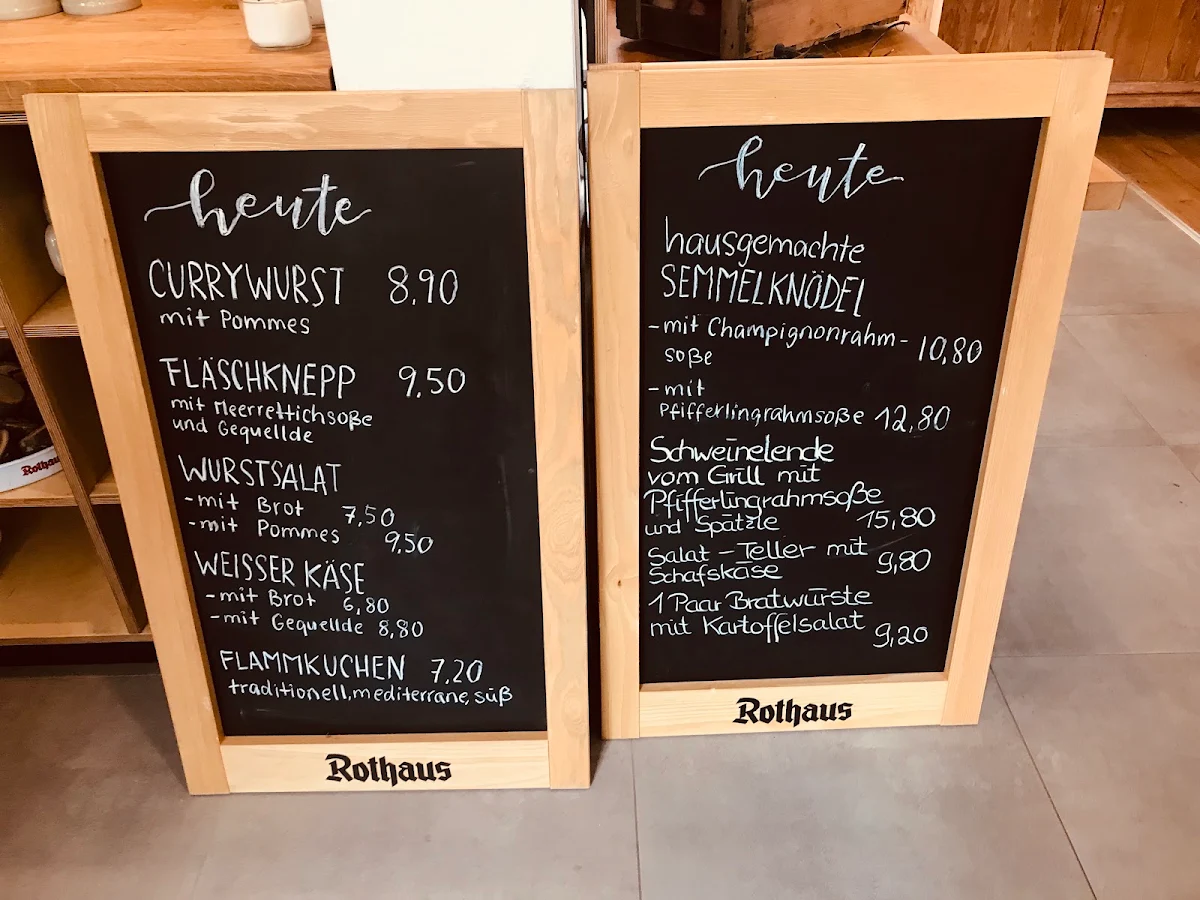 heute
CURRYWURST 8,90
mit Pommes
FLÄSCHKNEPP 9,50
mit Meerrettichsoße
und Gequellde
WURSTSALAT
-mit Brot 7,50
-mit Pommes 9,50
WEISSER KÄSE
-mit Brot 6,80
-mit Gequellde 8,80
FLAMMKUCHEN 7,20
traditionell, mediterrane, süß
Rothaus
heute
hausgemachte
SEMMELKNÖDEL
-mit Champignonrahm-
soße 10,80
-mit
Pfifferlingrahmsoße 12,80
Schweinelende
vom Grill mit
Pfifferlingrahmsoße
und Spätzle 15,80
Salat-Teller mit
Schafskäse 9,80
1 Paar Bratwürste
mit Kartoffelsalat 9,20
Rothaus
Rothaus